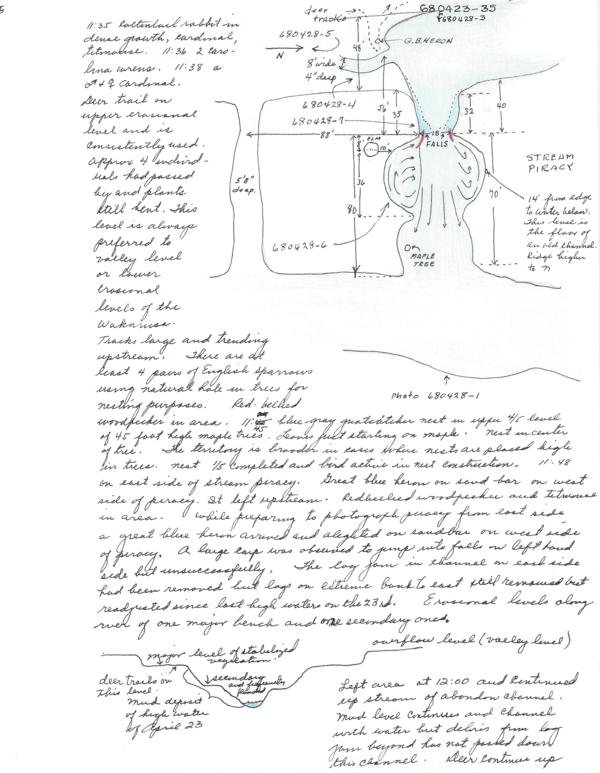 11:35 Cottontail rabbit in
dense growth, cardinal,
titmouse. 11:36 2 Caro-
lina wrens. 11:38 a
♂ + ♀ Cardinal.
Deer trail on
upper erosional
level and is
consistently used.
Approx 4 individ-
uals had passed
by and plants
still bent. This
level is always
preferred to
valley level
or lower
erosional
levels of the
Wakarusa.
Tracks large and trending
upstream. There are at
least 4 pairs of English Sparrows
using natural hole in trees for
nesting purposes. Red-bellied
woodpecker in area. 11:45 blue-gray gnatcatcher nest in upper 4/5 level
of 45 foot high maple trees. Leaves just starting on maple. Nest in center
of tree. The territory is broader in cases where nests are placed high
in trees. nest 1/5 completed and bird active in nest construction. 11:48
on east side of stream piracy. Great blue heron on sand bar on west
side of piracy. It left upstream. Redbellied woodpecker and titmouse
in area. While preparing to photograph piracy from east side
a great blue heron arrived and alighted on sandbar on west side
of piracy. A large carp was observed to jump into falls on left hand
side but unsuccessfully. The log jam in channel on east side
had been removed but logs on extreme bank to east still remained but
readjusted since last high waters on the 23rd. Erosional levels along
river of one major bench and one secondary ones.
deer
tracks
680423-35
680428-3
680428-5
N
48
G.B. HERON
8' wide
4" deep
56'
680428-4
35
32
40
680428-7
88'
18
FALLS
ELM
10'
8'
36
80
5'8"
deep
70'
STREAM
PIRACY
14' from edge
to water below.
This level is
the floor of
an old channel.
Ridge higher
to N
680428-6
MAPLE
TREE
Photo 680428-1
overflow level (valley level)
major level of stabilized
vegetation
deer trails on
this level
secondary
and frequently
flooded
Mud deposit
of high water
of April 23
Left area at 12:00 and continued
up stream of abandon channel.
Mud level continues and channel
with water but debris from log
jam beyond has not passed down
this channel. Deer continues up